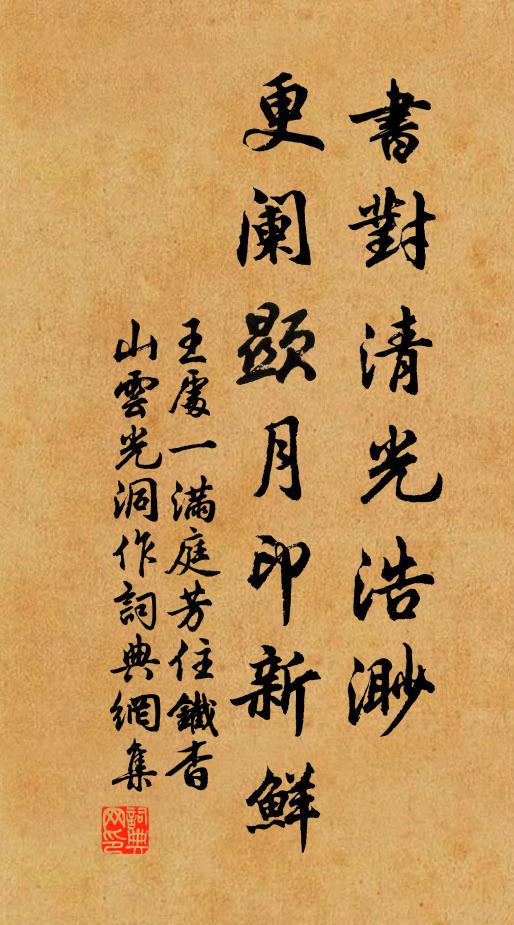 書對清光浩渺
更闌顯月印新鮮
王處一滿庭芳住鐵查
山雲光洞作詞典網集
詞典網印